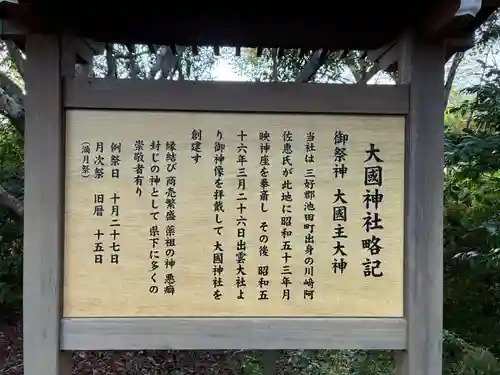 大國神社略記
御祭神 大國主大神
当社は 三好郡池田町出身の川崎阿
佐恵氏が此地に昭和五十三年月
映神座を奉斎し その後 昭和五
十六年三月二十六日出雲大社よ
り御神像を拝戴して 大國神社を
創建す
縁結び 商売繁盛 薬祖の神 悪癖
封じの神として 県下に多くの
崇敬者有り
例祭日 十月二十七日
月次祭 旧暦 十五日
（満月祭）